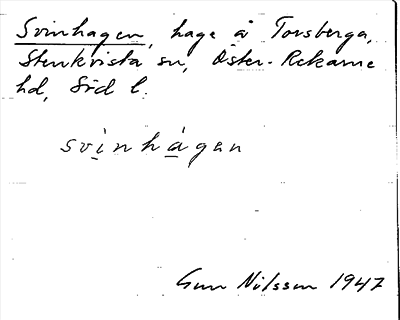 Svinhagen, hage å Torsberga,
Stenkvista sn, Öster-Rekarne
hd, Söd l.
svinhágan
Gun Nilsson 1947